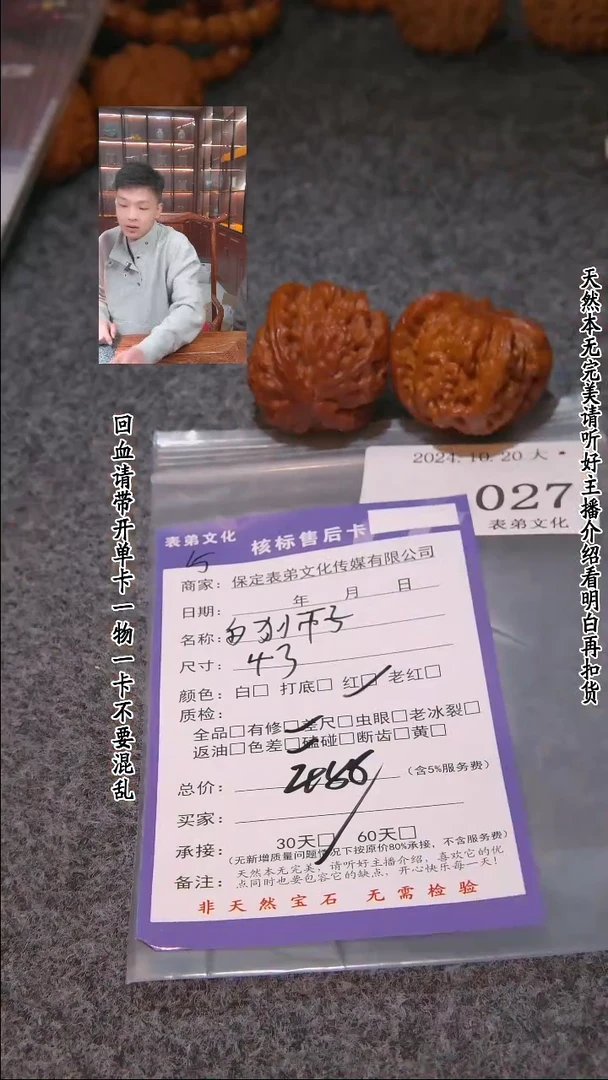 天然本无完美请听好主播介绍看明白再扣货
回血请带开单卡一物一卡不要混乱
2024.10.20 大
027
表弟文化
表弟文化 核标售后卡
商家：保定表弟文化传媒有限公司
日期： 年 月 日
名称：
尺寸：43
颜色：白□ 打底□ 红□ 老红□
质检：
全品□有修□差尺□虫眼□老冰裂□
返油□色差□磕碰□断齿□黄□
总价： （含5%服务费）
买家：
承接： 30天□ 60天□
（无新增质量问题情况下按原价80%承接，不含服务费）
备注：天然本无完美，请听好主播介绍，喜欢它的优
点同时也要包容它的缺点，开心快乐每一天！
非天然宝石 无需检验